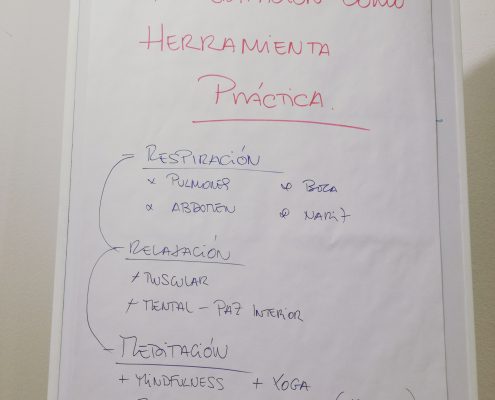 COMO
HERRAMIENTA
PRÁCTICA.
RESPIRACIÓN
x PULMONES x BOCA
x ABDOMEN x NARIZ
RELAJACIÓN
+ MUSCULAR
+ MENTAL - PAZ INTERIOR
MEDITACIÓN
+ MINDFULNESS + YOGA